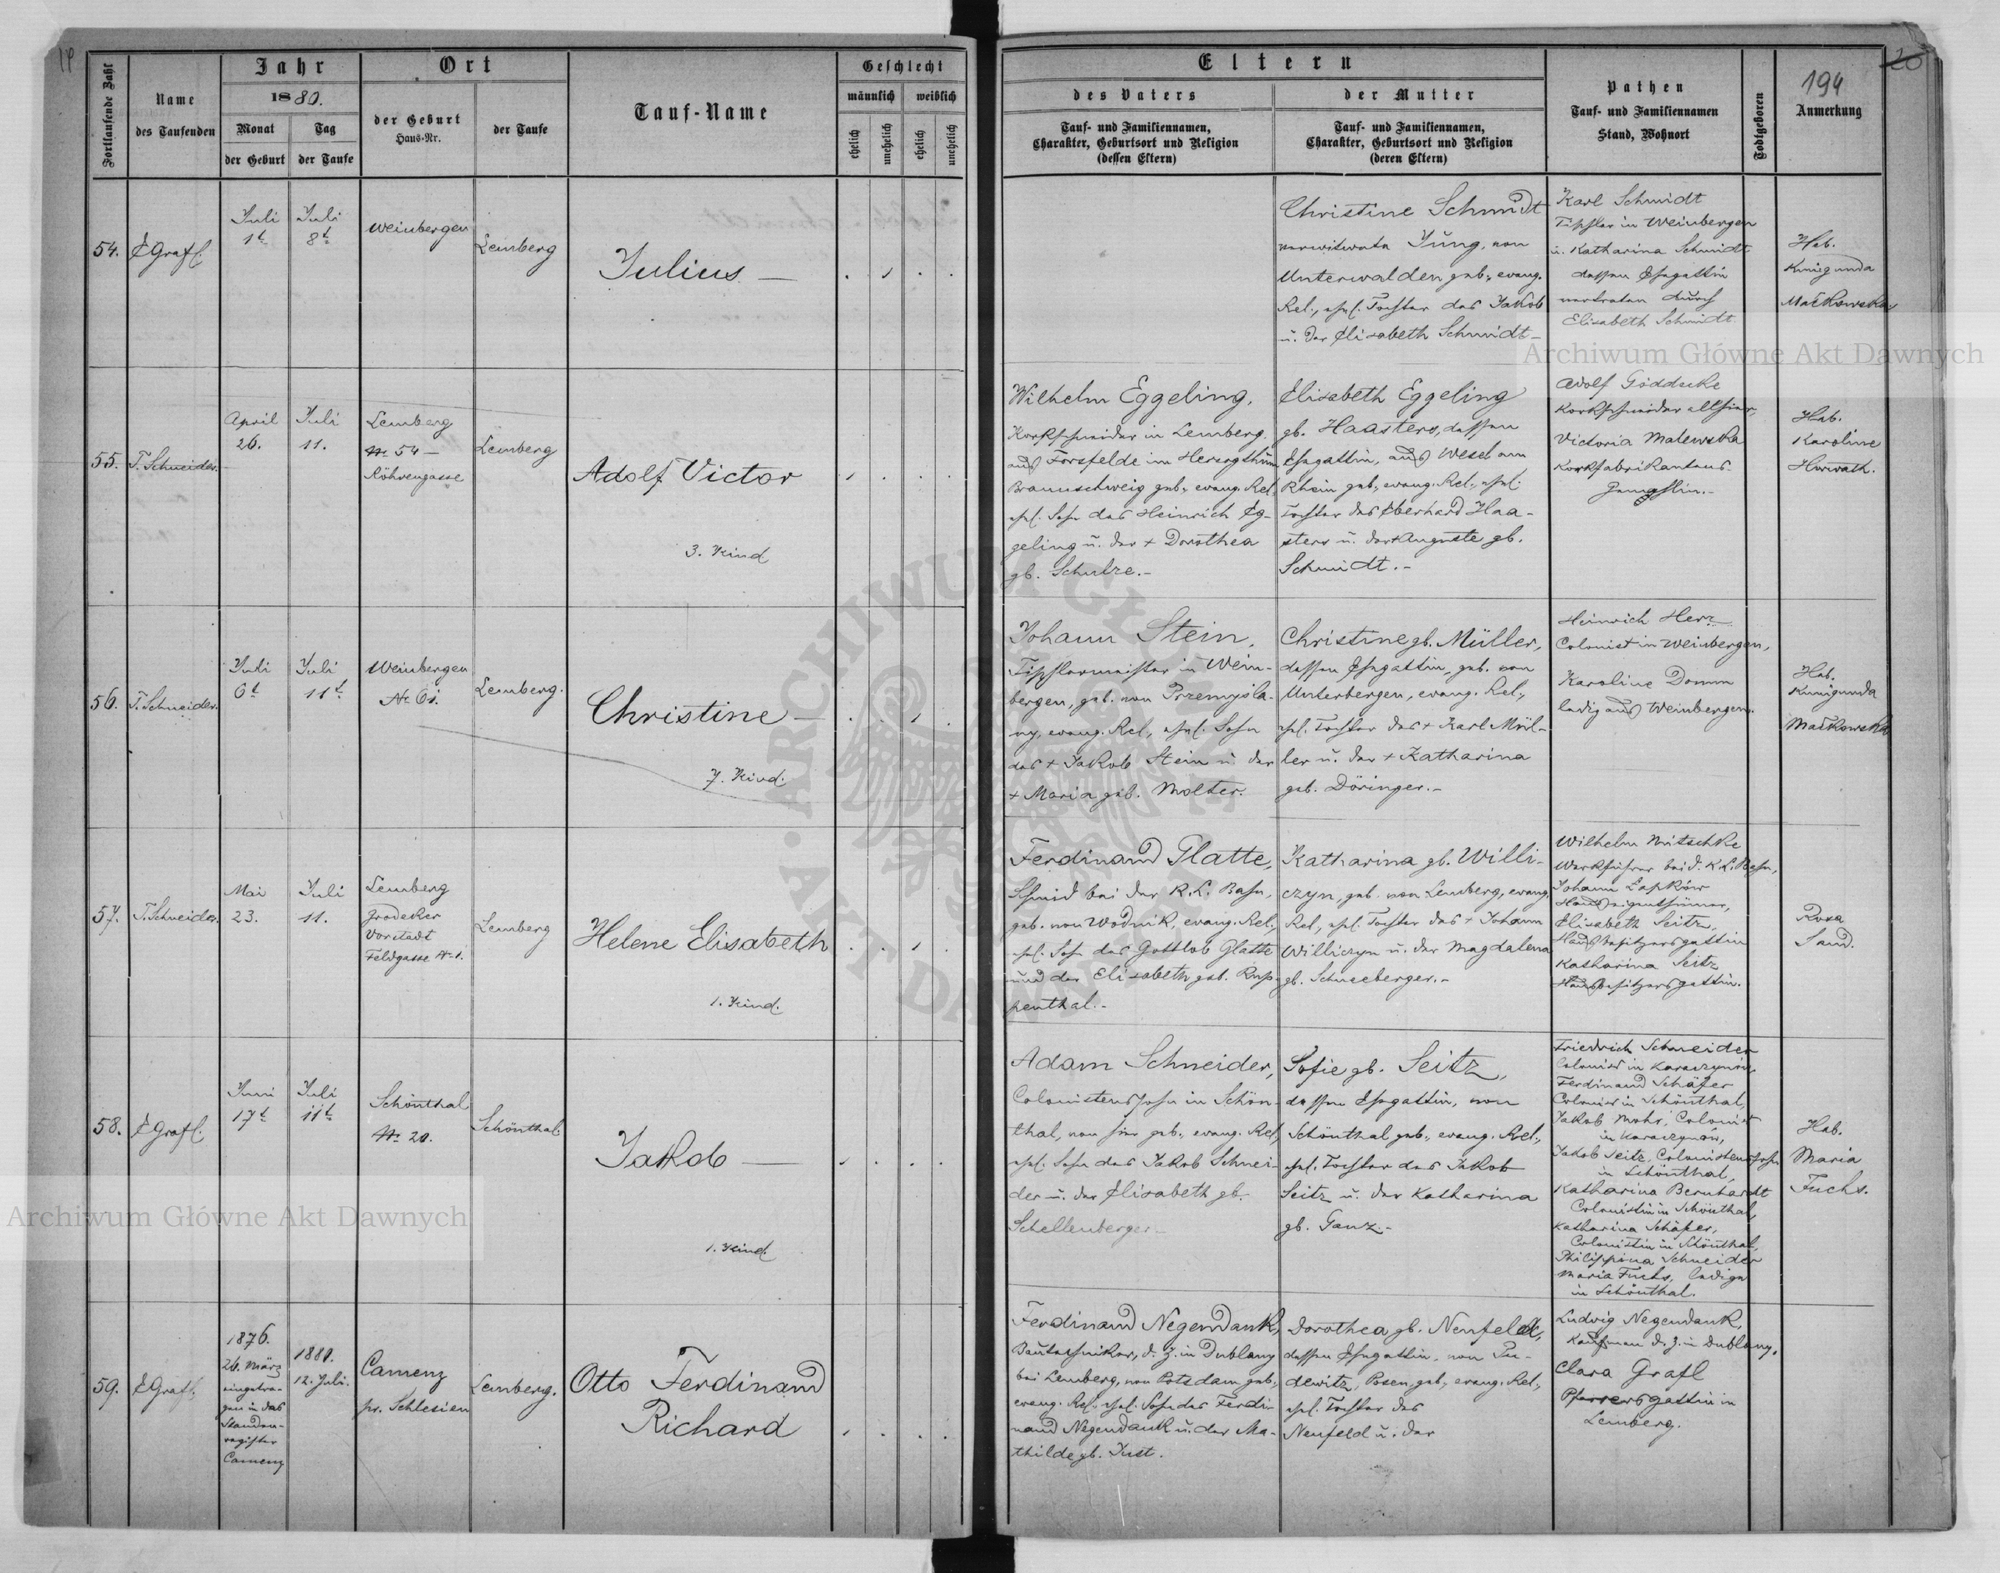 19
Fortlaufende Zahl
Name
des Taufenden
Jahr
1880.
Monat
der Geburt
Tag
der Taufe
Ort
der Geburt
Haus-Nr.
der Taufe
Tauf-Name
Geschlecht
männlich
weiblich
ehelich
unehelich
ehelich
unehelich
Eltern
des Vaters
Tauf- und Familiennamen,
Charakter, Geburtsort und Religion
(dessen Eltern)
der Mutter
Tauf- und Familiennamen,
Charakter, Geburtsort und Religion
(deren Eltern)
Pathen
Tauf- und Familiennamen
Stand, Wohnort
Todtgeboren
194
Anmerkung
20
54.
E Grafl.
Juli
1t
Juli
8t
Weinbergen
Lemberg
Julius —
Christine Schmidt
verwitwete Jung, von
Unterwalden geb., evang.
Rel., ehel. Tochter des Jakob
u. der Elisabeth Schmidt –
Karl Schmidt
Tischler in Weinbergen
u. Katharina Schmidt
dessen Ehegattin
vertreten durch
Elisabeth Schmidt
Heb.
Kunigunda
Maćkowska
55.
T. Schneider.
April
26.
Juli
11.
Lemberg
№ 54 –
Röhrengasse
Lemberg
Adolf Victor
3. Kind
Wilhelm Eggeling,
Korkschneider in Lemberg.
aus Forsfelde im Herzogthum
Braunschweig geb., evang. Rel,
ehel. Sohn des Heinrich Eg-
geling u. der + Dorothea
gb. Schulze. –
Elisabeth Eggeling
gb. Haasters, dessen
Ehegattin, aus Wesel am
Rhein geb., evang. Rel., ehel.
Tochter des Eberhard Haa-
sters u. der + Auguste gb.
Schmidt. –
Adolf Göddecke
Korkschneider allhier,
Victoria Malewska
Korkfabrikantens
Gemahlin. –
Heb.
Karoline
Horwath.
56.
T. Schneider.
Juli
6t
Juli
11t
Weinbergen
№ 61.
Lemberg.
Christine —
7. Kind.
Johann Stein,
Tischlermeister in Wein-
bergen, geb. von Przemysla-
ny, evang. Rel., ehel. Sohn
des + Jakob Stein u der
+ Maria geb. Molter.
Christine gb. Müller,
dessen Ehegattin, geb. von
Unterbergen, evang. Rel.,
ehel. Tochter des + Karl Mül-
ler u. der + Katharina
geb. Döringer. –
Heinrich Herz
Colonist in Weinbergen,
Karoline Domm
ledig aus Weinbergen.
Heb.
Kunigunda
Maćkowska
57.
T. Schneider.
Mai
23.
Juli
11.
Lemberg
Grodeker
Vorstadt
Feldgasse № 1.
Lemberg
Helene Elisabeth
1. Kind.
Ferdinand Glatte,
Schmid bei der K. L. Bahn,
geb. von Wodnik, evang. Rel.,
ehel. Sohn des Gottlob Glatte
und der Elisabeth geb. Rup-
penthal. –
Katharina gb. Willi-
czyn, geb. von Lemberg, evang.
Rel, ehel. Tochter des + Johann
Williczyn u. der Magdalena
gb. Schneeberger. –
Wilhelm Nitschke
Werkführer bei d. K. L. Bahn,
Johann Łopków
Hauseigenthümer,
Elisabeth Seitz,
Hausbesitzersgattin
Katharina Seitz
Hausbesitzersgattin.
Rosa
Sand.
58.
E Grafl.
Juni
17t
Juli
11t
Schönthal
№ 20.
Schönthal
Jakob —
1. Kind.
Adam Schneider,
Colonistenssohn in Schön-
thal, von hier geb., evang. Rel,
ehel. Sohn des Jakob Schnei-
der u. der Elisabeth gb.
Schellenberger –
Sofie gb. Seitz,
dessen Ehegattin, von
Schönthal geb., evang. Rel.,
ehel. Tochter des Jakob
Seitz u. der Katharina
gb. Ganz. –
Friedrich Schneider
Colonist in Karaczynow,
Ferdinand Schäfer
Colonist in Schönthal,
Jakob Mohr, Colonist
in Karaczynow,
Jakob Seitz, Colonistenssohn
in Schönthal,
Katharina Bernhardt
Colonistin in Schönthal,
Katharina Schäfer,
Colonistin in Schönthal,
Philippina Schneider
Maria Fuchs, ledige
in Schönthal.
Heb.
Maria
Fuchs.
59.
E Grafl.
1876.
26. März
eingetra-
gen in das
Standes-
register
Camenz
1880.
12. Juli.
Camenz
pr. Schlesien
Lemberg.
Otto Ferdinand
Richard
Ferdinand Negendank,
Bautechniker, d. Z. in Dublany
bei Lemberg, von Potsdam geb.,
evang. Rel., ehel. Sohn des Ferdi-
nand Negendank u. der Ma-
thilde gb. Just.
Dorothea gb. Neufeldt,
dessen Ehegattin, von Pu-
dewitz, Posen, geb., evang. Rel.,
ehel. Tochter des
Neufeld u. der
Ludwig Negendank,
Kaufman d. Z. in Dublany,
Clara Grafl
Pfarrersgattin in
Lemberg.
Archiwum Główne Akt Dawnych
Archiwum Główne Akt Dawnych